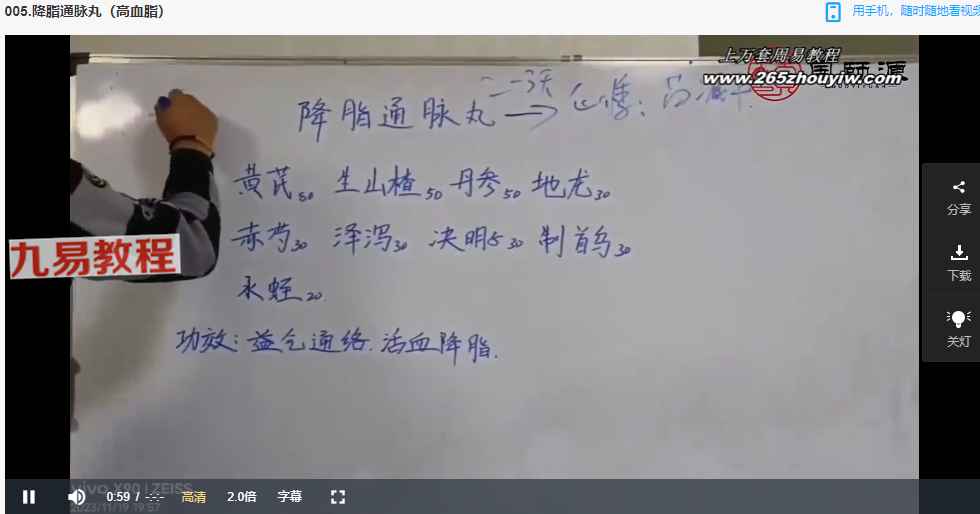 005.降脂通脉丸（高血脂）
用手机，随时随地看视频
上万套周易教程
www.265zhouyiw.com
降脂通脉丸
黄芪50 生山楂50 丹参50 地龙30
赤芍30 泽泻30 决明子30 制首乌30
水蛭20
功效：益气通络.活血降脂.
九易教程
分享
下载
关灯
vivo X90 | ZEISS
2023/11/19 19:57
0:59 / -:-:- 高清 2.0倍 字幕